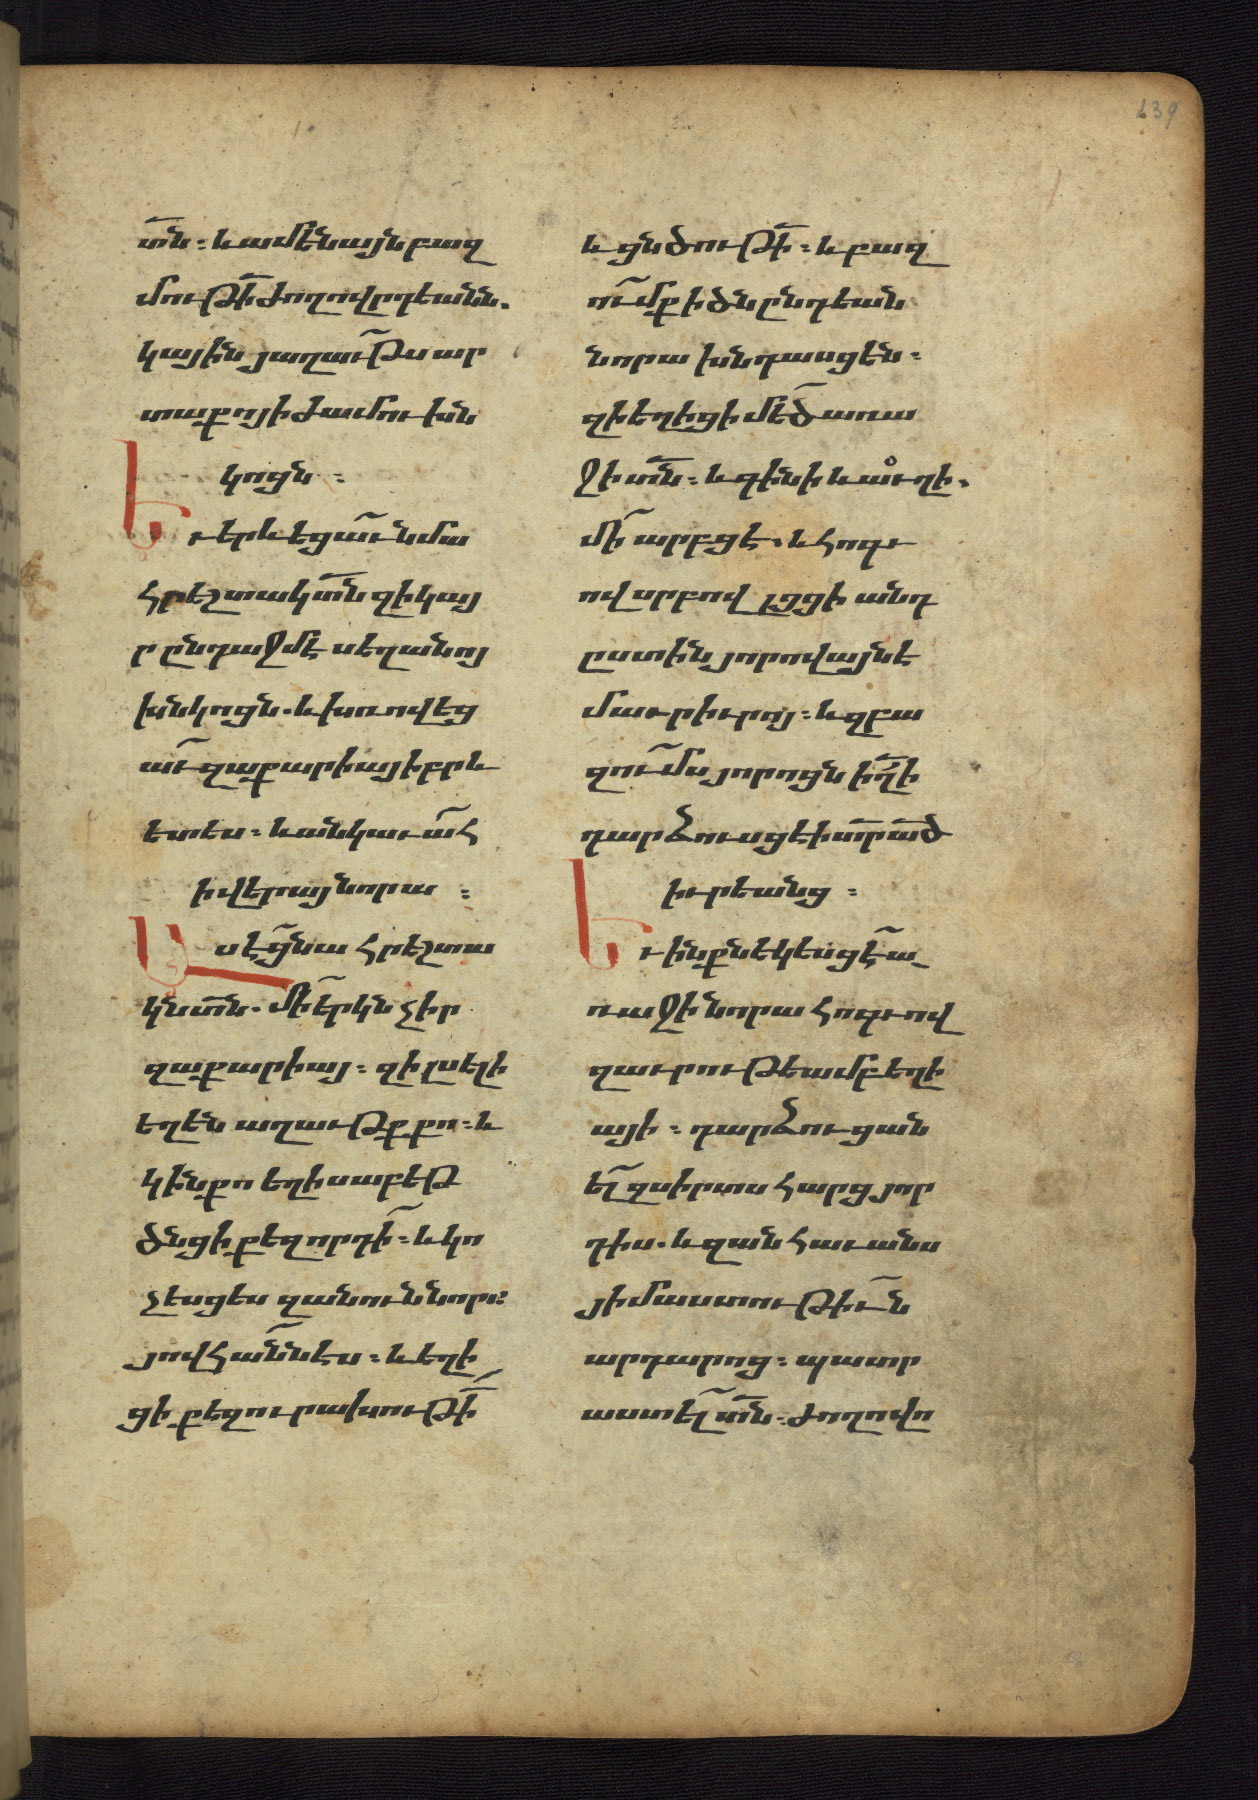 139
տն։ և ամենայն բազ
մութի ժողովրդեանն.
կային յաղաւթս ար
տաքոյ ի ժամու խն
կոցն։
Եւ երևեցաւ նմա
հրեշտակ տն զի կայ
ր ընդ աջմէ սեղանոյ
խնկոցն. և խռովեց
աւ զաքարիա իբրև
ետես։ և անկաւ ահ
ի վերայ նորա։
Ասէ ցնա հրեշտա
կն տն. մի երկնչիր
զաքարիայ։ զի լսելի
եղեն աղաւթք քո։ և
կին քո եղիսաբեթ
ծնցի քեզ որդի։ և կո
չեսցես զանուն նորա
յովհաննէս։ և եղի
ցի քեզ ուրախութի
և ցնծութի։ և բազ
ումք ի ծնընդեան
նորա խնդասցեն։
զի եղիցի մեծ առա
ջի տն։ և գինի և աւղի.
մի արբցէ. և հոգւ
ով սրբով լցցի անդ
ըստին յորովայնէ
մաւր իւրոյ։ և զբա
զումս յորոցն իղի
դարձուսցէ ի տր ած
իւրեանց։
Եւ ինքն եկեսցէ ա
ռաջի նորա հոգւով
զաւրութեամբ եղի
այի։ դարձուցան
ել զսիրտս հարց յոր
դիս. և զանհաւանս
յիմաստութիւն
արդարոց։ պատր
աստել տն։ ժողովո